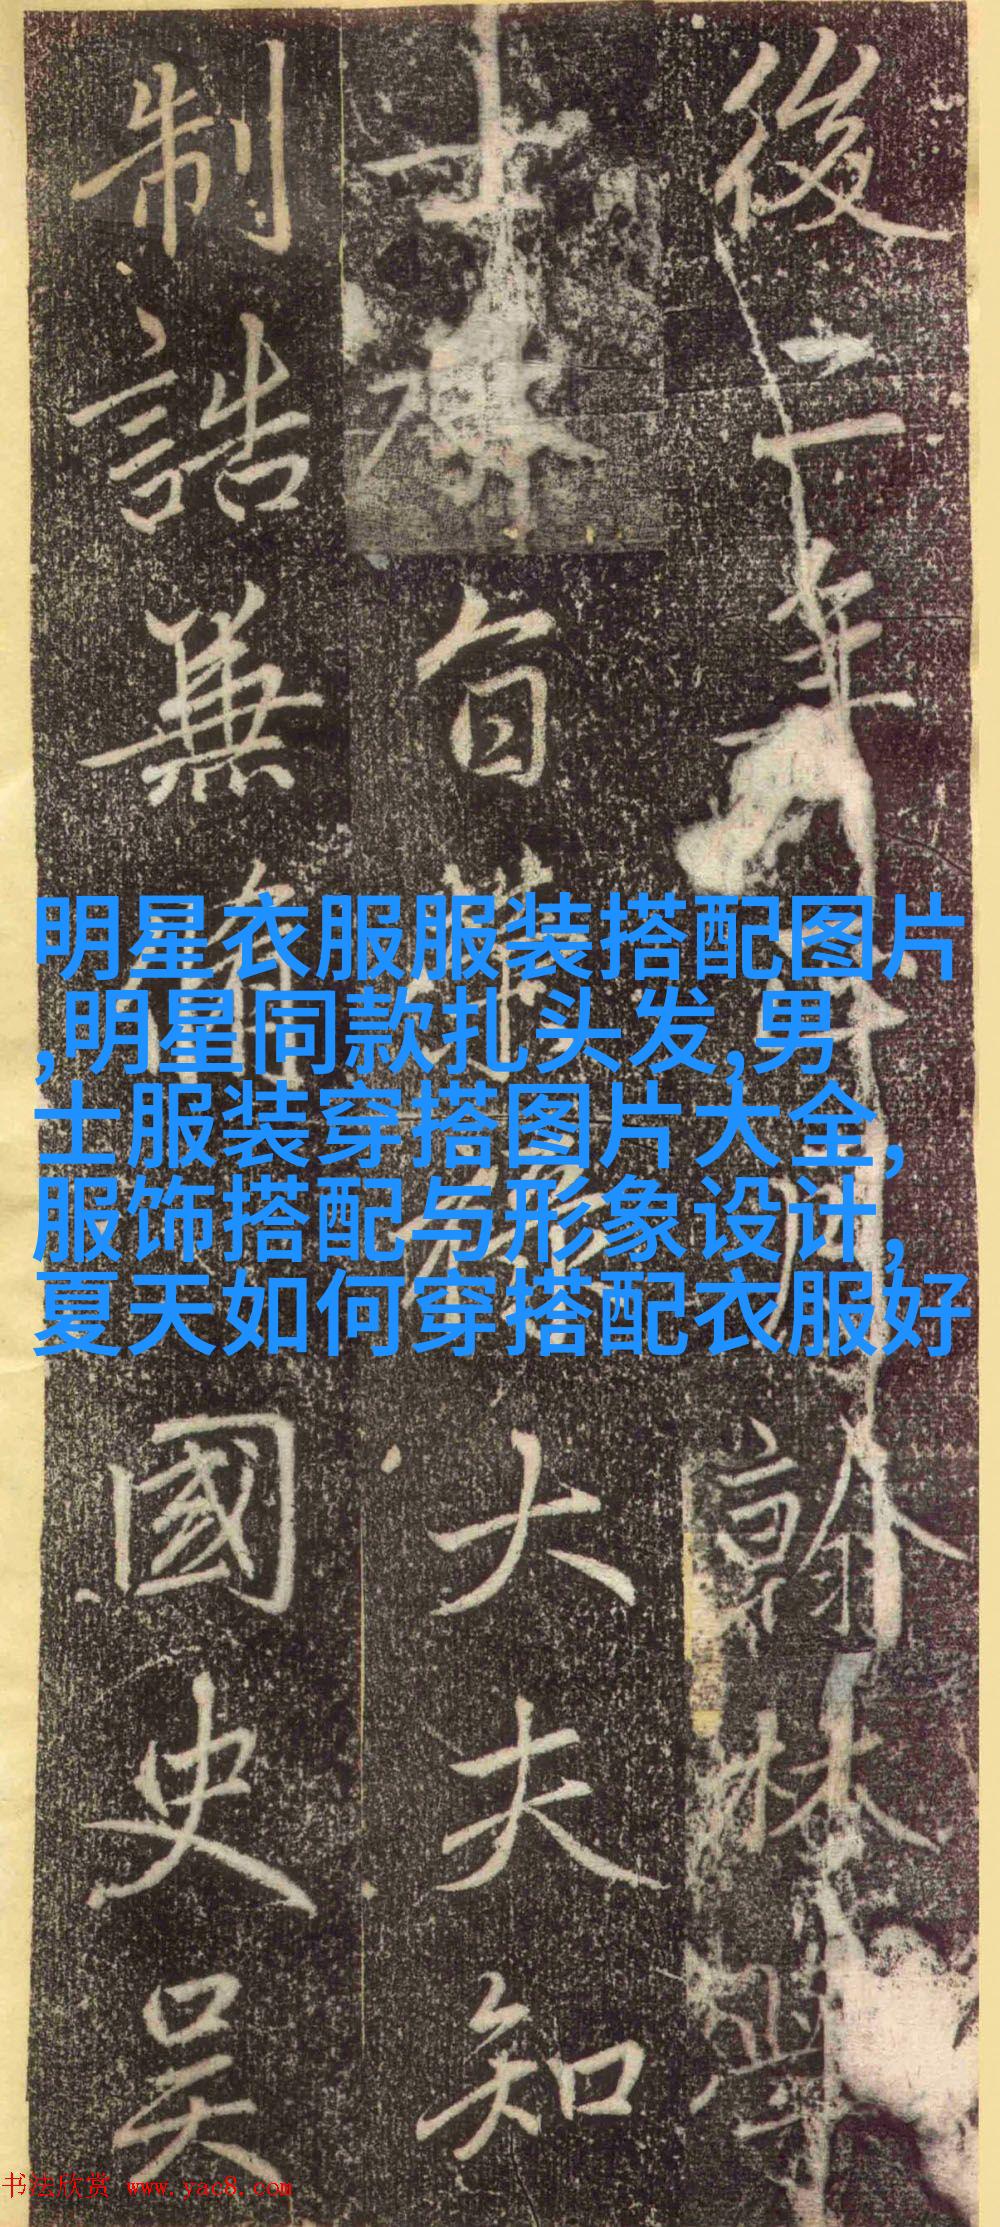 後二年月翰林學
士旨大夫知
制誥兼脩國史吳
明星衣服服装搭配图片
,明星同款扎头发,男
士服装穿搭图片大全,
服饰搭配与形象设计,
夏天如何穿搭配衣服好
书法欣赏 www.yac8.com